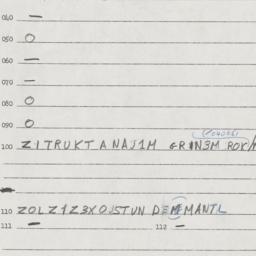 040 —
050 O
060 —
070 —
080 O
090 O
100 ZITRUKT A NAJ1M GRIN3M ROK
110 ZOLZ1Z3XOJSTUN DEM MANTL
111 — 112 —